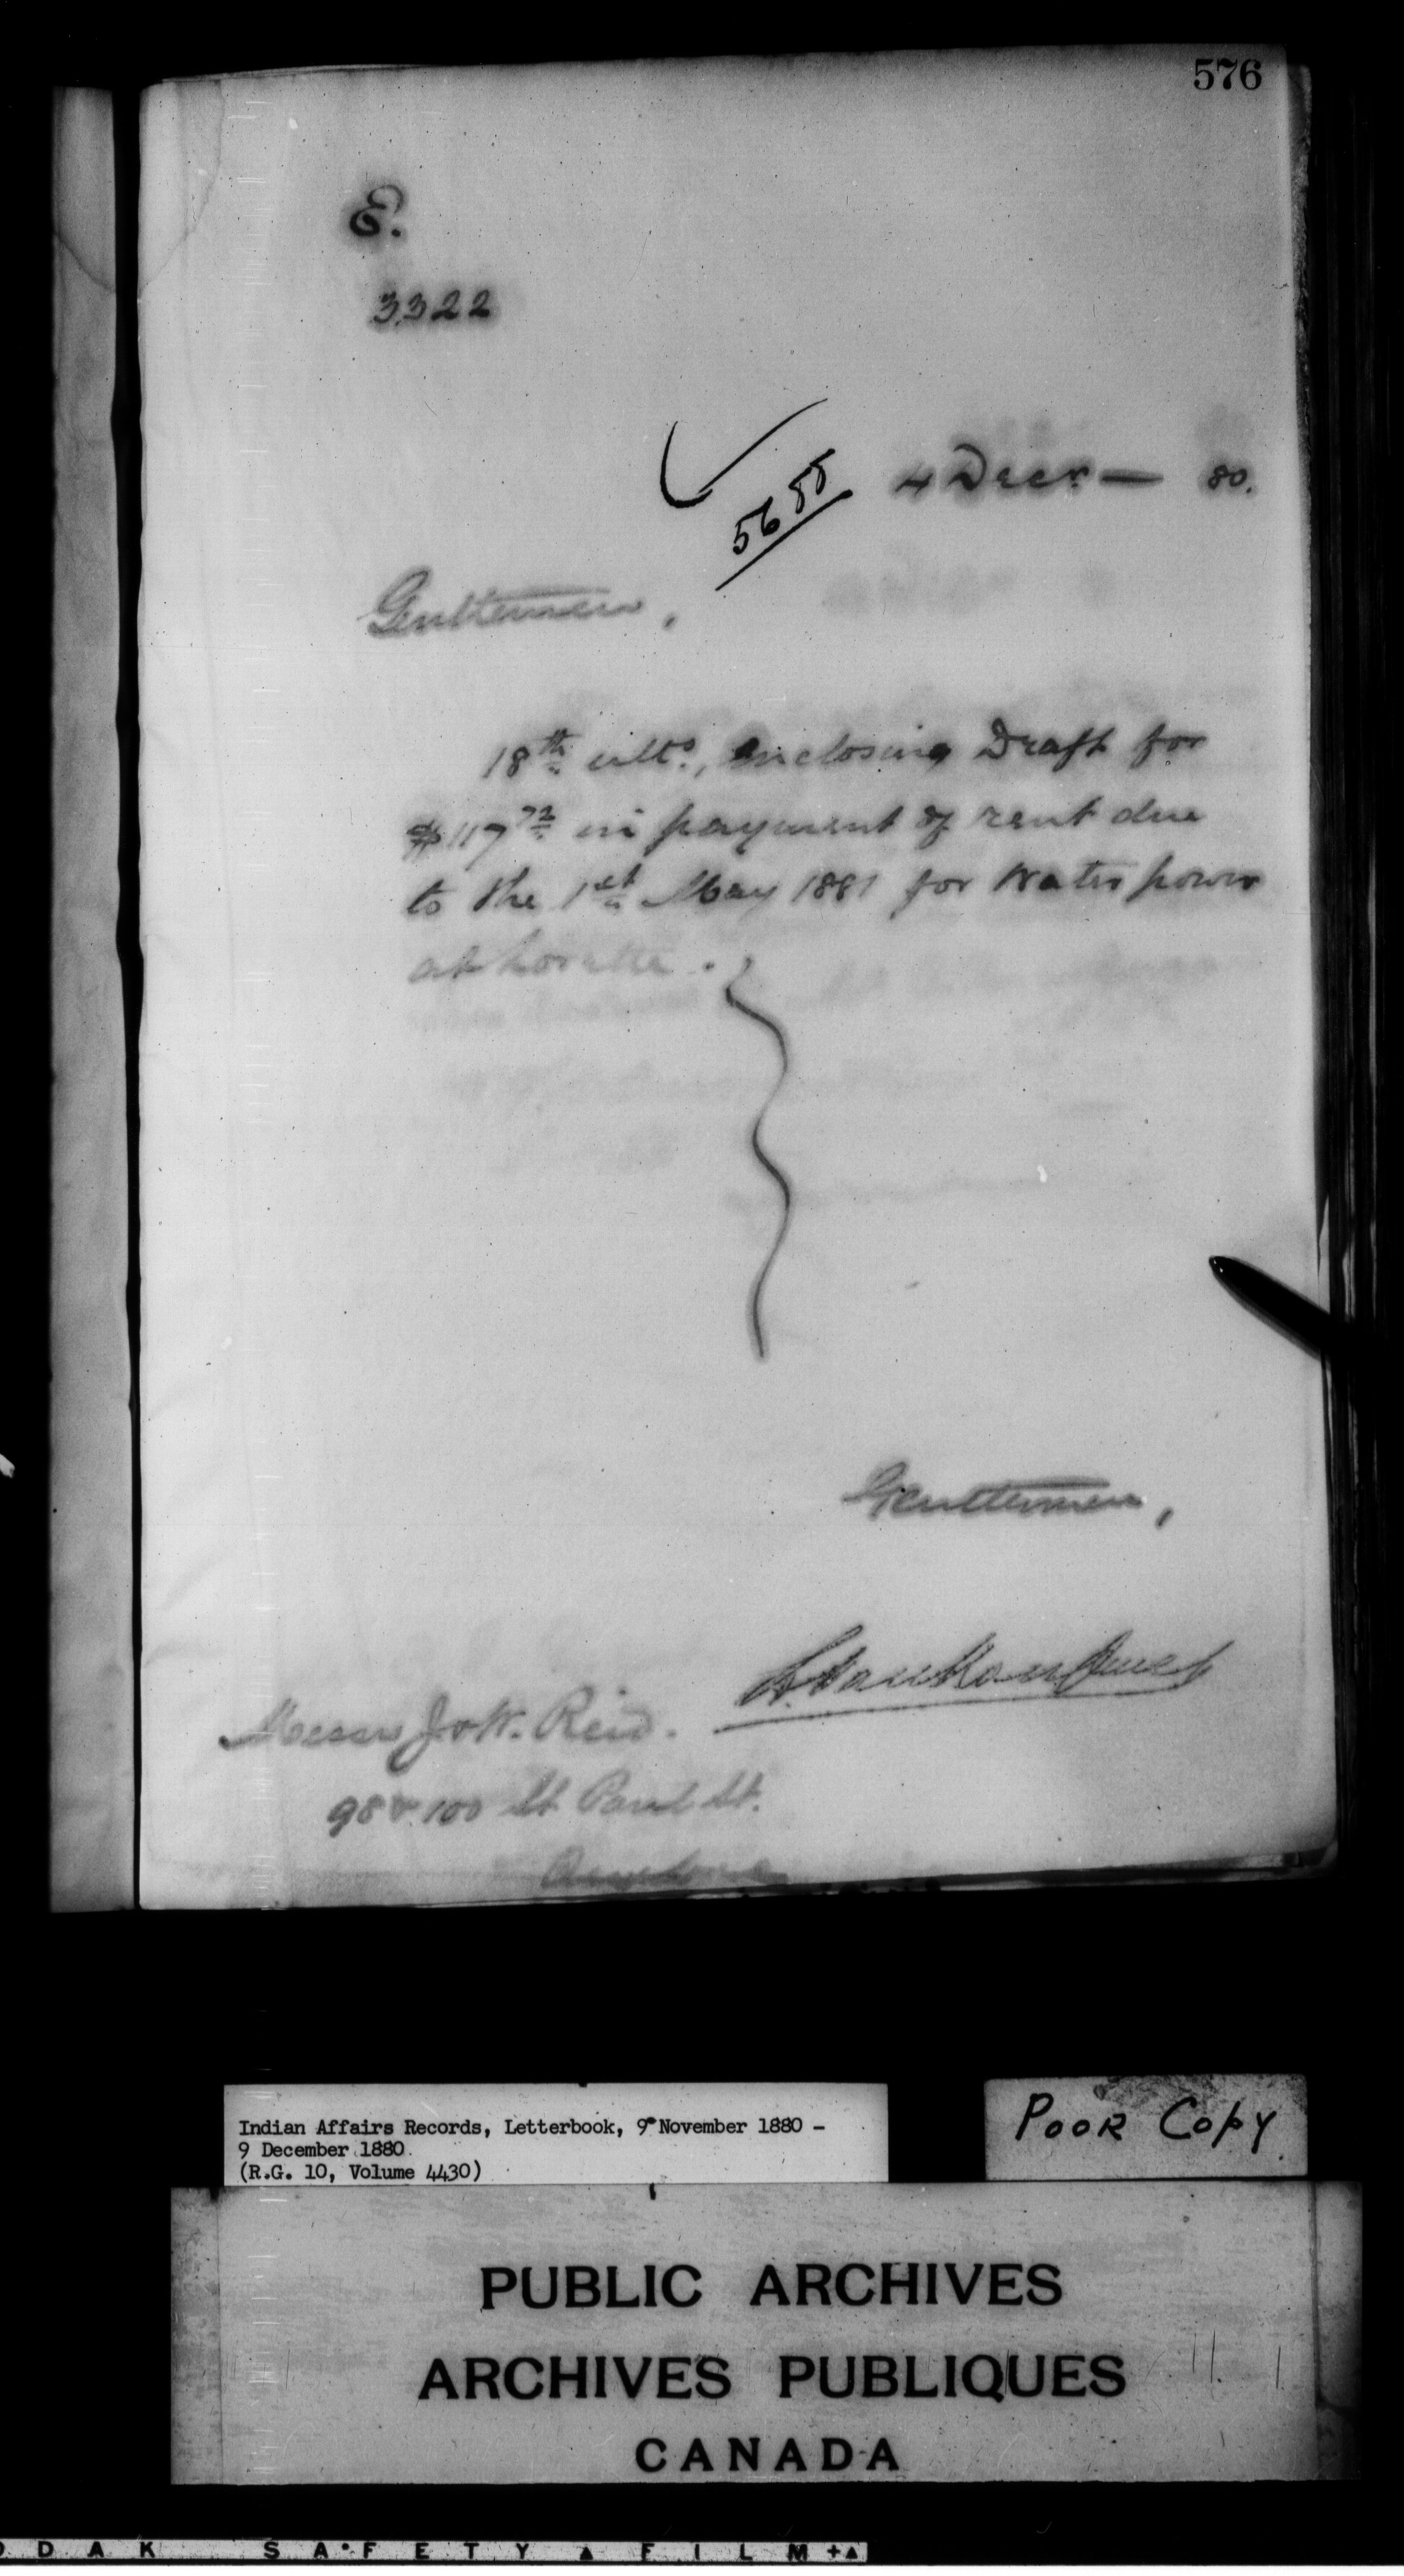 576
E.
3322
4 Decr — 80.
5655
Gentlemen,
18th ulto., Enclosing Draft for
$117.72 in payment of rent due
to the 1st May 1881 for Water power
at Lorette.
Gentlemen,
L. VanKoughnet
Messrs J & W. Reid.
98 & 100 St. Paul St.
Indian Affairs Records, Letterbook, 9 November 1880 -
9 December 1880
(R.G. 10, Volume 4430)
POOR COPY
PUBLIC ARCHIVES
ARCHIVES PUBLIQUES
CANADA
DAK SAFETY FILM